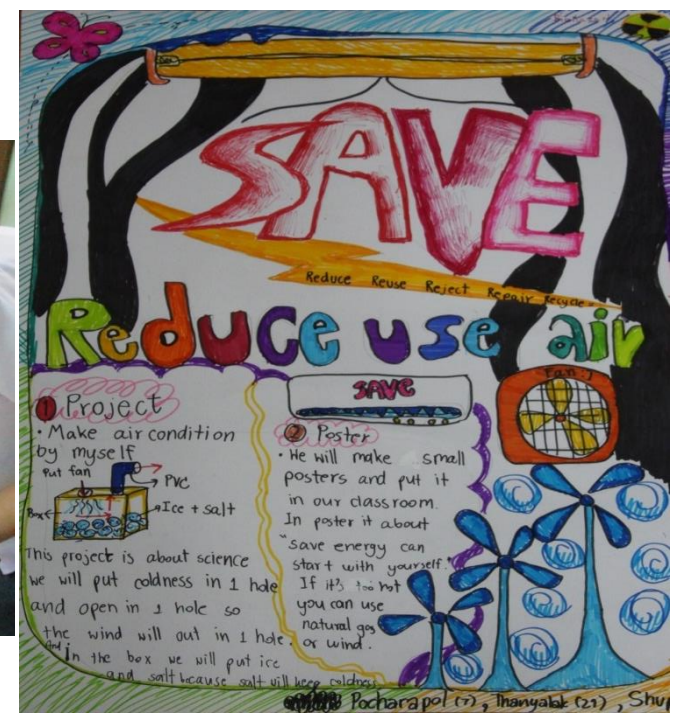 SAVE
Reduce Reuse Reject Repair Recycle
Reduce use air
Fan :)
① Project
• Make air condition
by myself
Put fan
PVC
Box
Ice + salt
This project is about science
we will put coldness in 1 hole
and open in 1 hole so
the wind will out in 1 hole.
And in the box we will put ice
and salt because salt will keep coldness
SAVE
② Poster
• We will make small
posters and put it
in our classroom.
In poster it about
"save energy can
start with yourself.
If it's too hot
you can use
natural gas
or wind.
Pocharapol (7), Thanyalak (21),